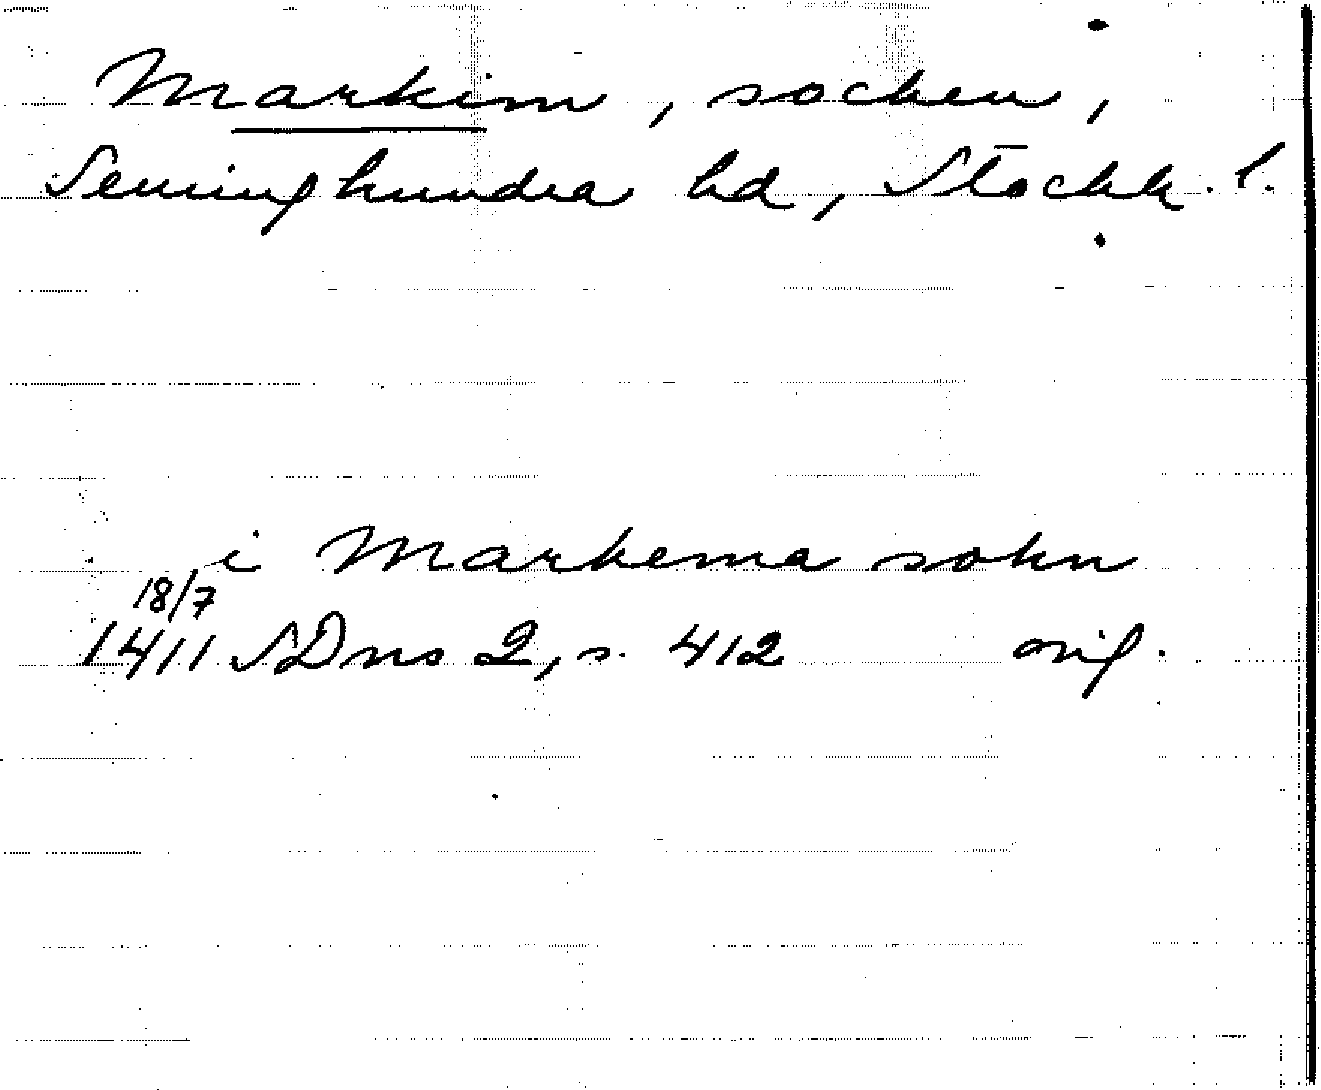 Markim, socken,
Seminghundra hd, Stockh. l.
i Markema sokn
18/7
1411 SDns 2, s. 412 orig.